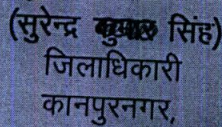 (सुरेन्द्र कुमार सिंह)
जिलाधिकारी
कानपुरनगर,